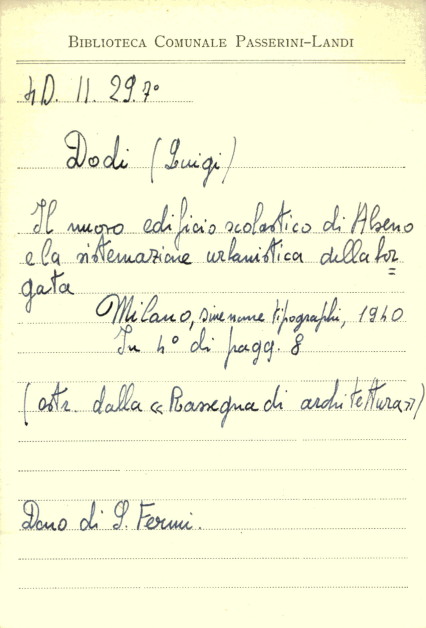 BIBLIOTECA COMUNALE PASSERINI-LANDI
4D. 11. 29.7º
Dodi (Luigi)
Il nuovo edificio scolastico di Alseno
e la sistemazione urbanistica della bor=
gata
Milano, sine nomine tipographi, 1940
In 4º di pagg. 8
(estr. dalla «Rassegna di architettura»)
Dono di S. Fermi.